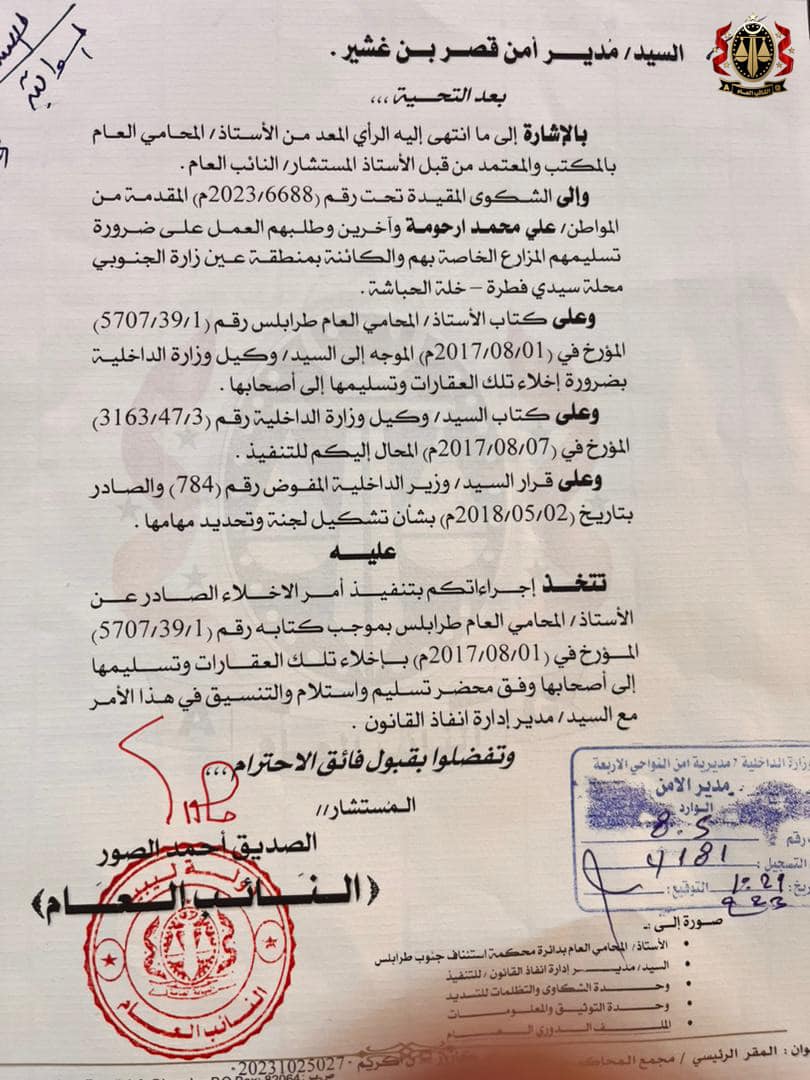 السيد/ مُدير أمن قصر بن غشير .
بعد التحية ،،،
بالإشارة إلى ما انتهى إليه الرأي المعد من الأستاذ/ المحامي العام
بالمكتب والمعتمد من قبل الأستاذ المستشار/ النائب العام .
وإلى الشكوى المقيدة تحت رقم (2023/6688م) المقدمة من
المواطن/ علي محمد ارحومة وآخرين وطلبهم العمل على ضرورة
تسليمهم المزارع الخاصة بهم والكائنة بمنطقة عين زارة الجنوبي
محلة سيدي فطرة – خلة الحباشة .
وعلى كتاب الأستاذ/ المحامي العام طرابلس رقم (5707/39/1)
المؤرخ في (2017/08/01م) الموجه إلى السيد/ وكيل وزارة الداخلية
بضرورة إخلاء تلك العقارات وتسليمها إلى أصحابها .
وعلى كتاب السيد/ وكيل وزارة الداخلية رقم (3163/47/3)
المؤرخ في (2017/08/07م) المحال إليكم للتنفيذ .
وعلى قرار السيد/ وزير الداخلية المفوض رقم (784) والصادر
بتاريخ (2018/05/02م) بشأن تشكيل لجنة وتحديد مهامها .
عليه
تتخذ إجراءاتكم بتنفيذ أمر الاخلاء الصادر عن
الأستاذ/ المحامي العام طرابلس بموجب كتابه رقم (5707/39/1)
المؤرخ في (2017/08/01م) بإخلاء تلك العقارات وتسليمها
إلى أصحابها وفق محضر تسليم واستلام والتنسيق في هذا الأمر
مع السيد/ مدير إدارة انفاذ القانون .
وتفضلوا بقبول فائق الاحترام ،،،
المُستشار//
الصديق أحمد الصور
﴿النائب العام﴾
دولة ليبيا
النائب العام
وزارة الداخلية / مديرية امن النواحي الاربعة
مدير الأمن
الوارد
رقم 8.5
التسجيل : 4181
التوقيع :
صورة إلى :-
• الأستاذ/ المحامي العام بدائرة محكمة استئناف جنوب طرابلس
• السيد/ مدير إدارة انفاذ القانون / للتنفيذ
• وحدة الشكاوى والتظلمات للتديد
• وحدة التوثيق والمعلومات
• الملف الدوري العام
المقر الرئيسي / مجمع المحاكم
20231025027
النائب العام